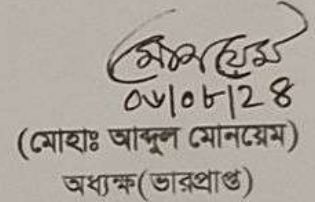 ০৬|০৮|২৪
(মোহাঃ আব্দুল মোনয়েম)
অধ্যক্ষ(ভারপ্রাপ্ত)